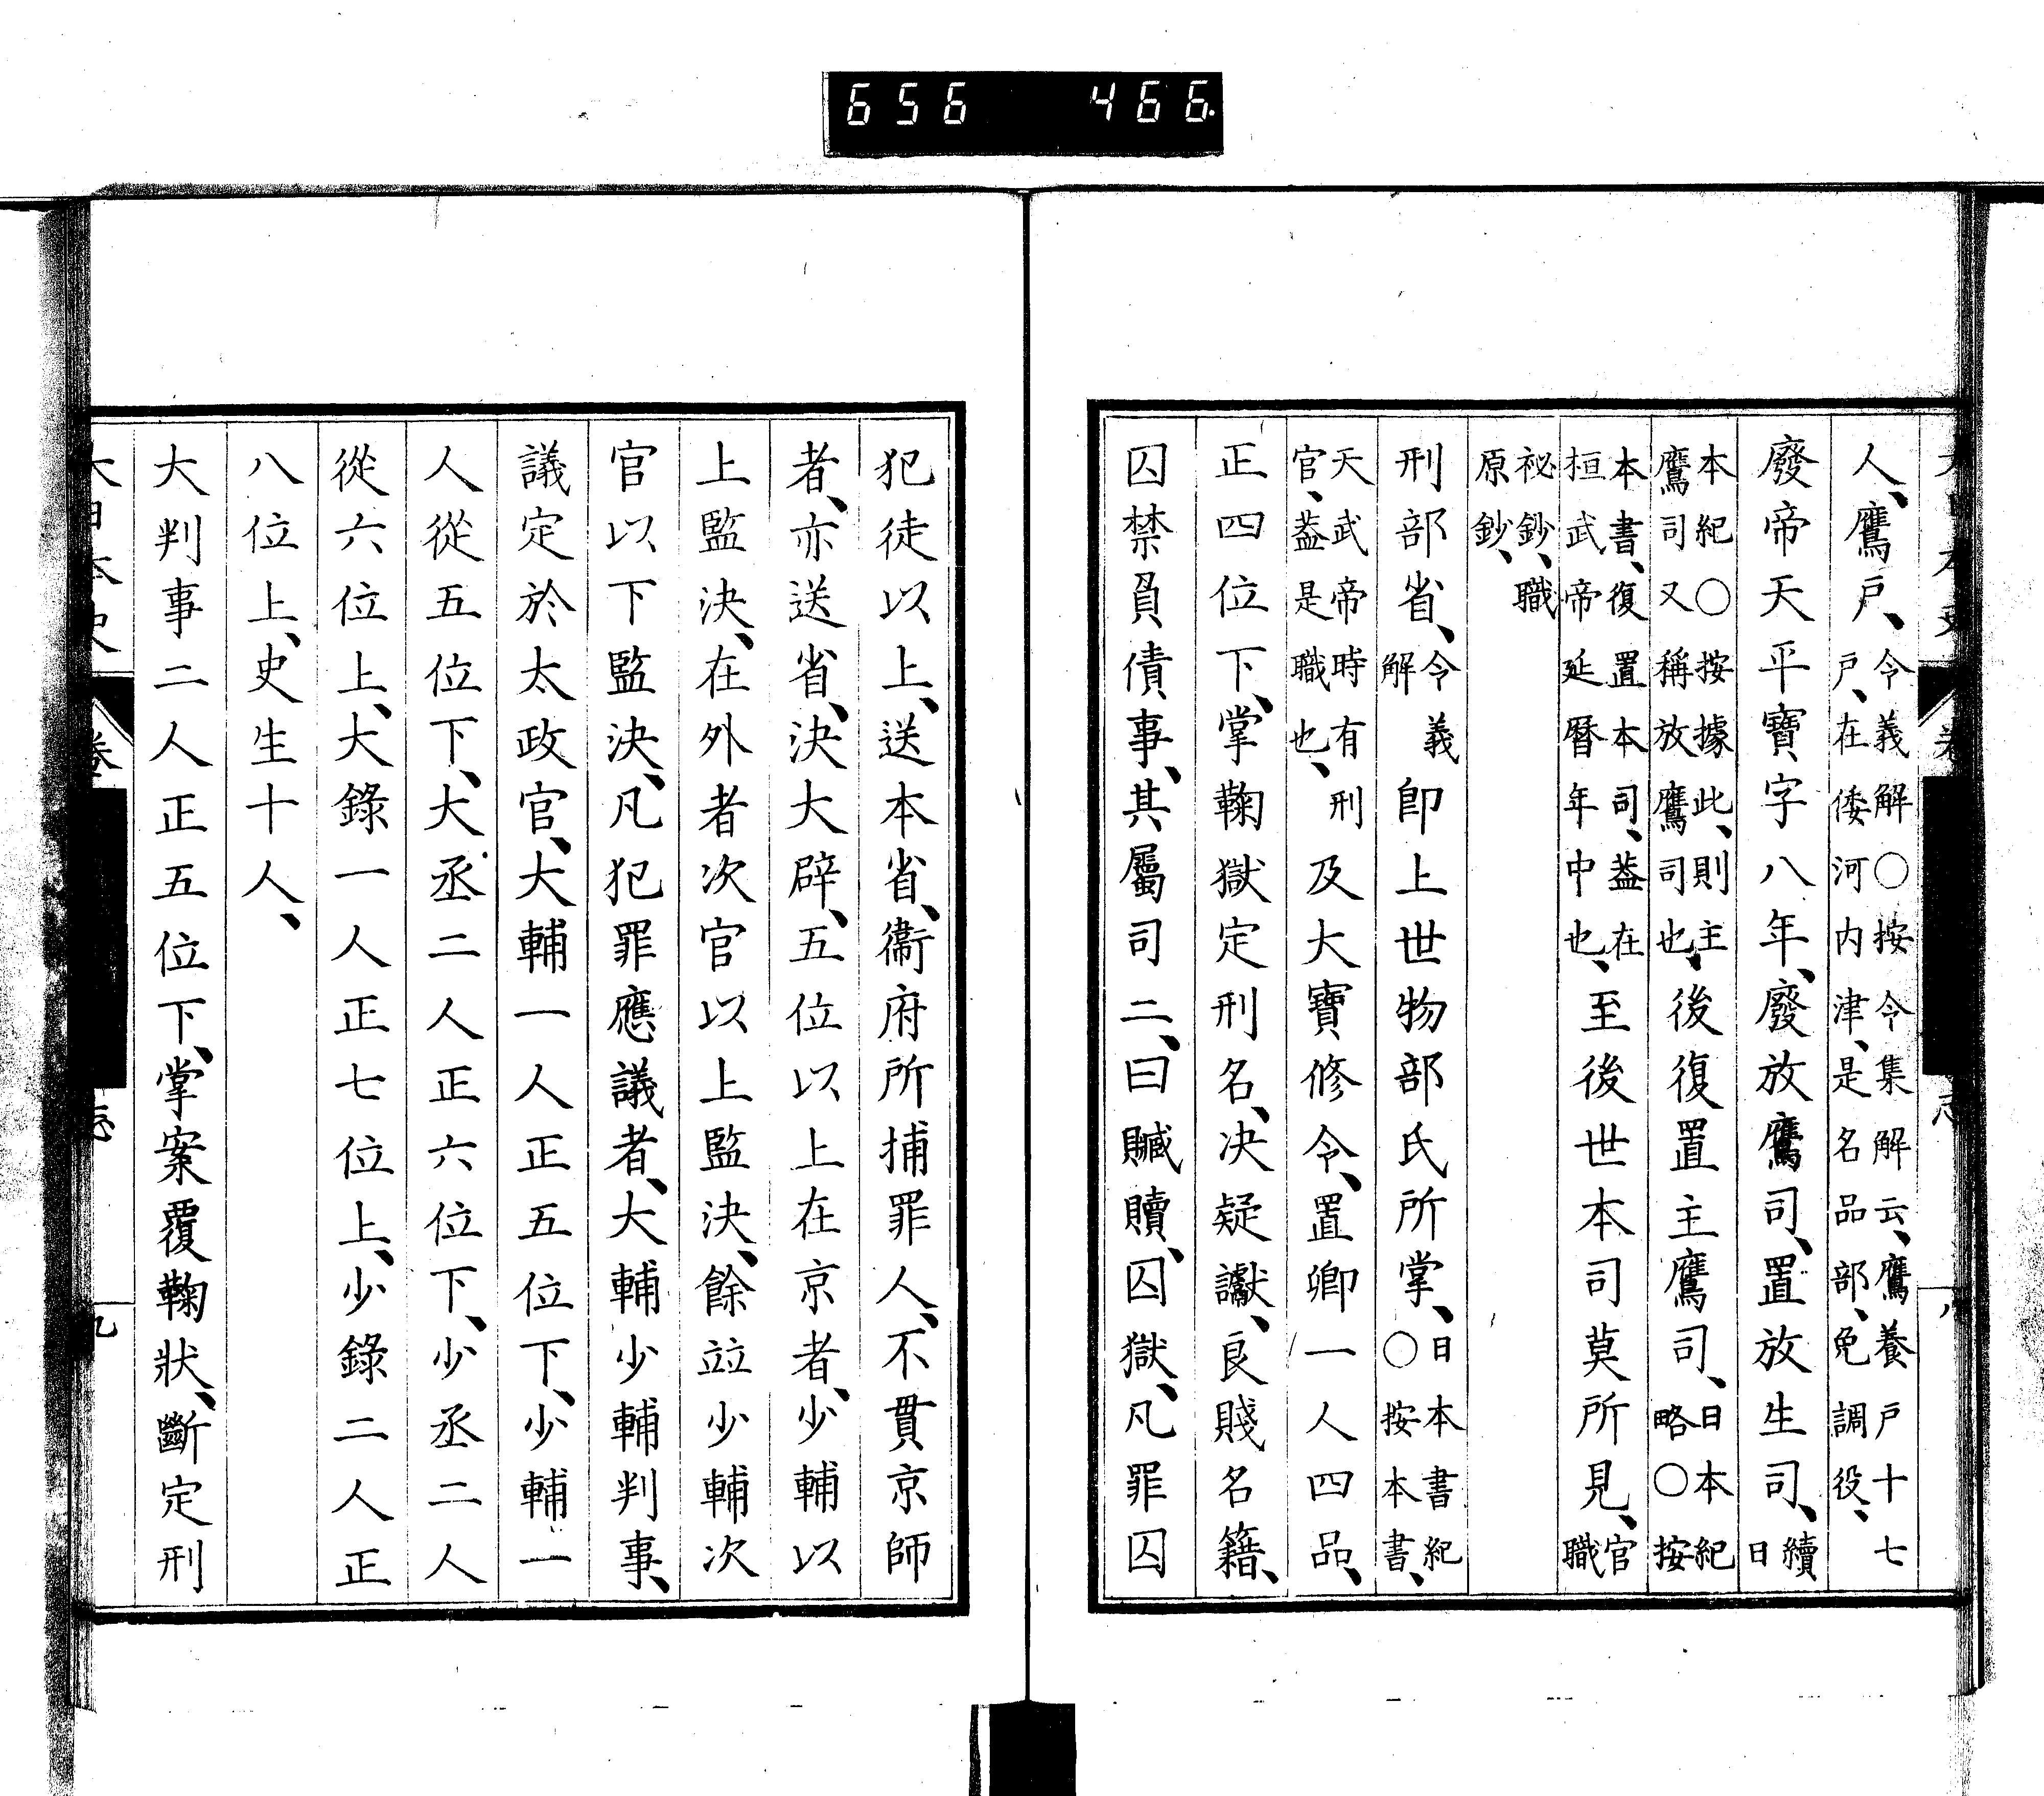 656 466.
人、鷹戶、令義解○按令集解云、鷹養戶十七戶、在倭河内津、是名品部、免調役、
廢帝天平寶字八年、廢放鷹司、置放生司、續日
本紀○按據此、則主鷹司又稱放鷹司也、後復置主鷹司、日本紀略○按
本書、復置本司、蓋在桓武帝延曆年中也、至後世本司莫所見、官職
祕鈔、職原鈔、
刑部省、令義解卽上世物部氏所掌、日本書紀○按本書、
天武帝時有刑官、蓋是職也、及大寶修令、置卿一人四品、
正四位下、掌鞠獄定刑名、決疑讞、良賤名籍、
囚禁負債事、其屬司二、曰贓贖、囚獄、凡罪囚
犯徒以上、送本省、衞府所捕罪人、不貫京師
者、亦送省、決大辟、五位以上在京者、少輔以
上監決、在外者次官以上監決、餘竝少輔次
官以下監決、凡犯罪應議者、大輔少輔判事、
議定於太政官、大輔一人正五位下、少輔一
人從五位下、大丞二人正六位下、少丞二人
從六位上、大錄一人正七位上、少錄二人正
八位上、史生十人、
大判事二人正五位下、掌案覆鞠狀、斷定刑
大日本史 卷 志 九